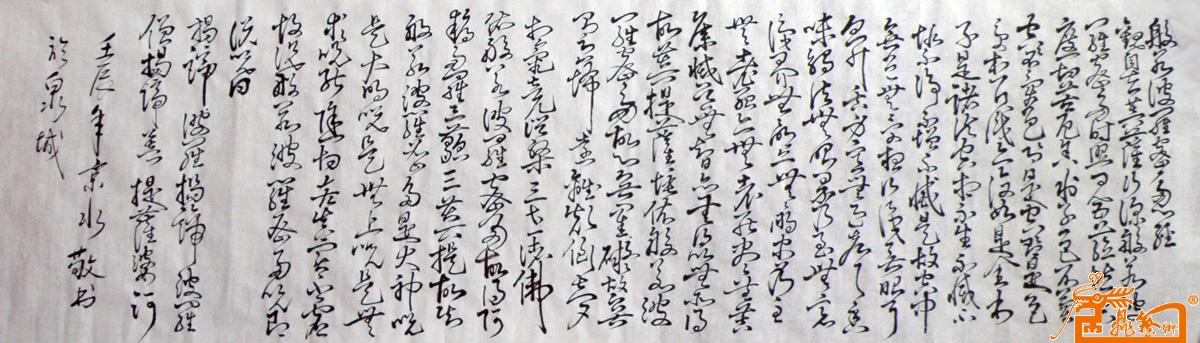 般若波羅蜜多心經
觀自在菩薩行深般若波
羅蜜多時照見五蘊皆空
度一切苦厄舍利子色不異
空空不異色色即是空空即是色
受想行識亦復如是舍利
子是諸法空相不生不滅不
垢不淨不增不減是故空中
無色無受想行識無眼耳
鼻舌身意無色聲香
味觸法無眼界乃至無意
識界無無明亦無無明盡乃至
無老死亦無老死盡無苦
集滅道無智亦無得以無所得
故菩提薩埵依般若波
羅蜜多故心無罣礙無罣礙故無
有恐怖遠離顛倒夢
想究竟涅槃三世諸佛
依般若波羅蜜多故得阿
耨多羅三藐三菩提故知
般若波羅蜜多是大神咒
是大明咒是無上咒是無
等等咒能除一切苦真實不虛
故說般若波羅蜜多咒即
說咒曰
揭諦 波羅揭諦 波羅
僧揭諦 菩提薩婆訶
壬辰年京水敬书
於泉城